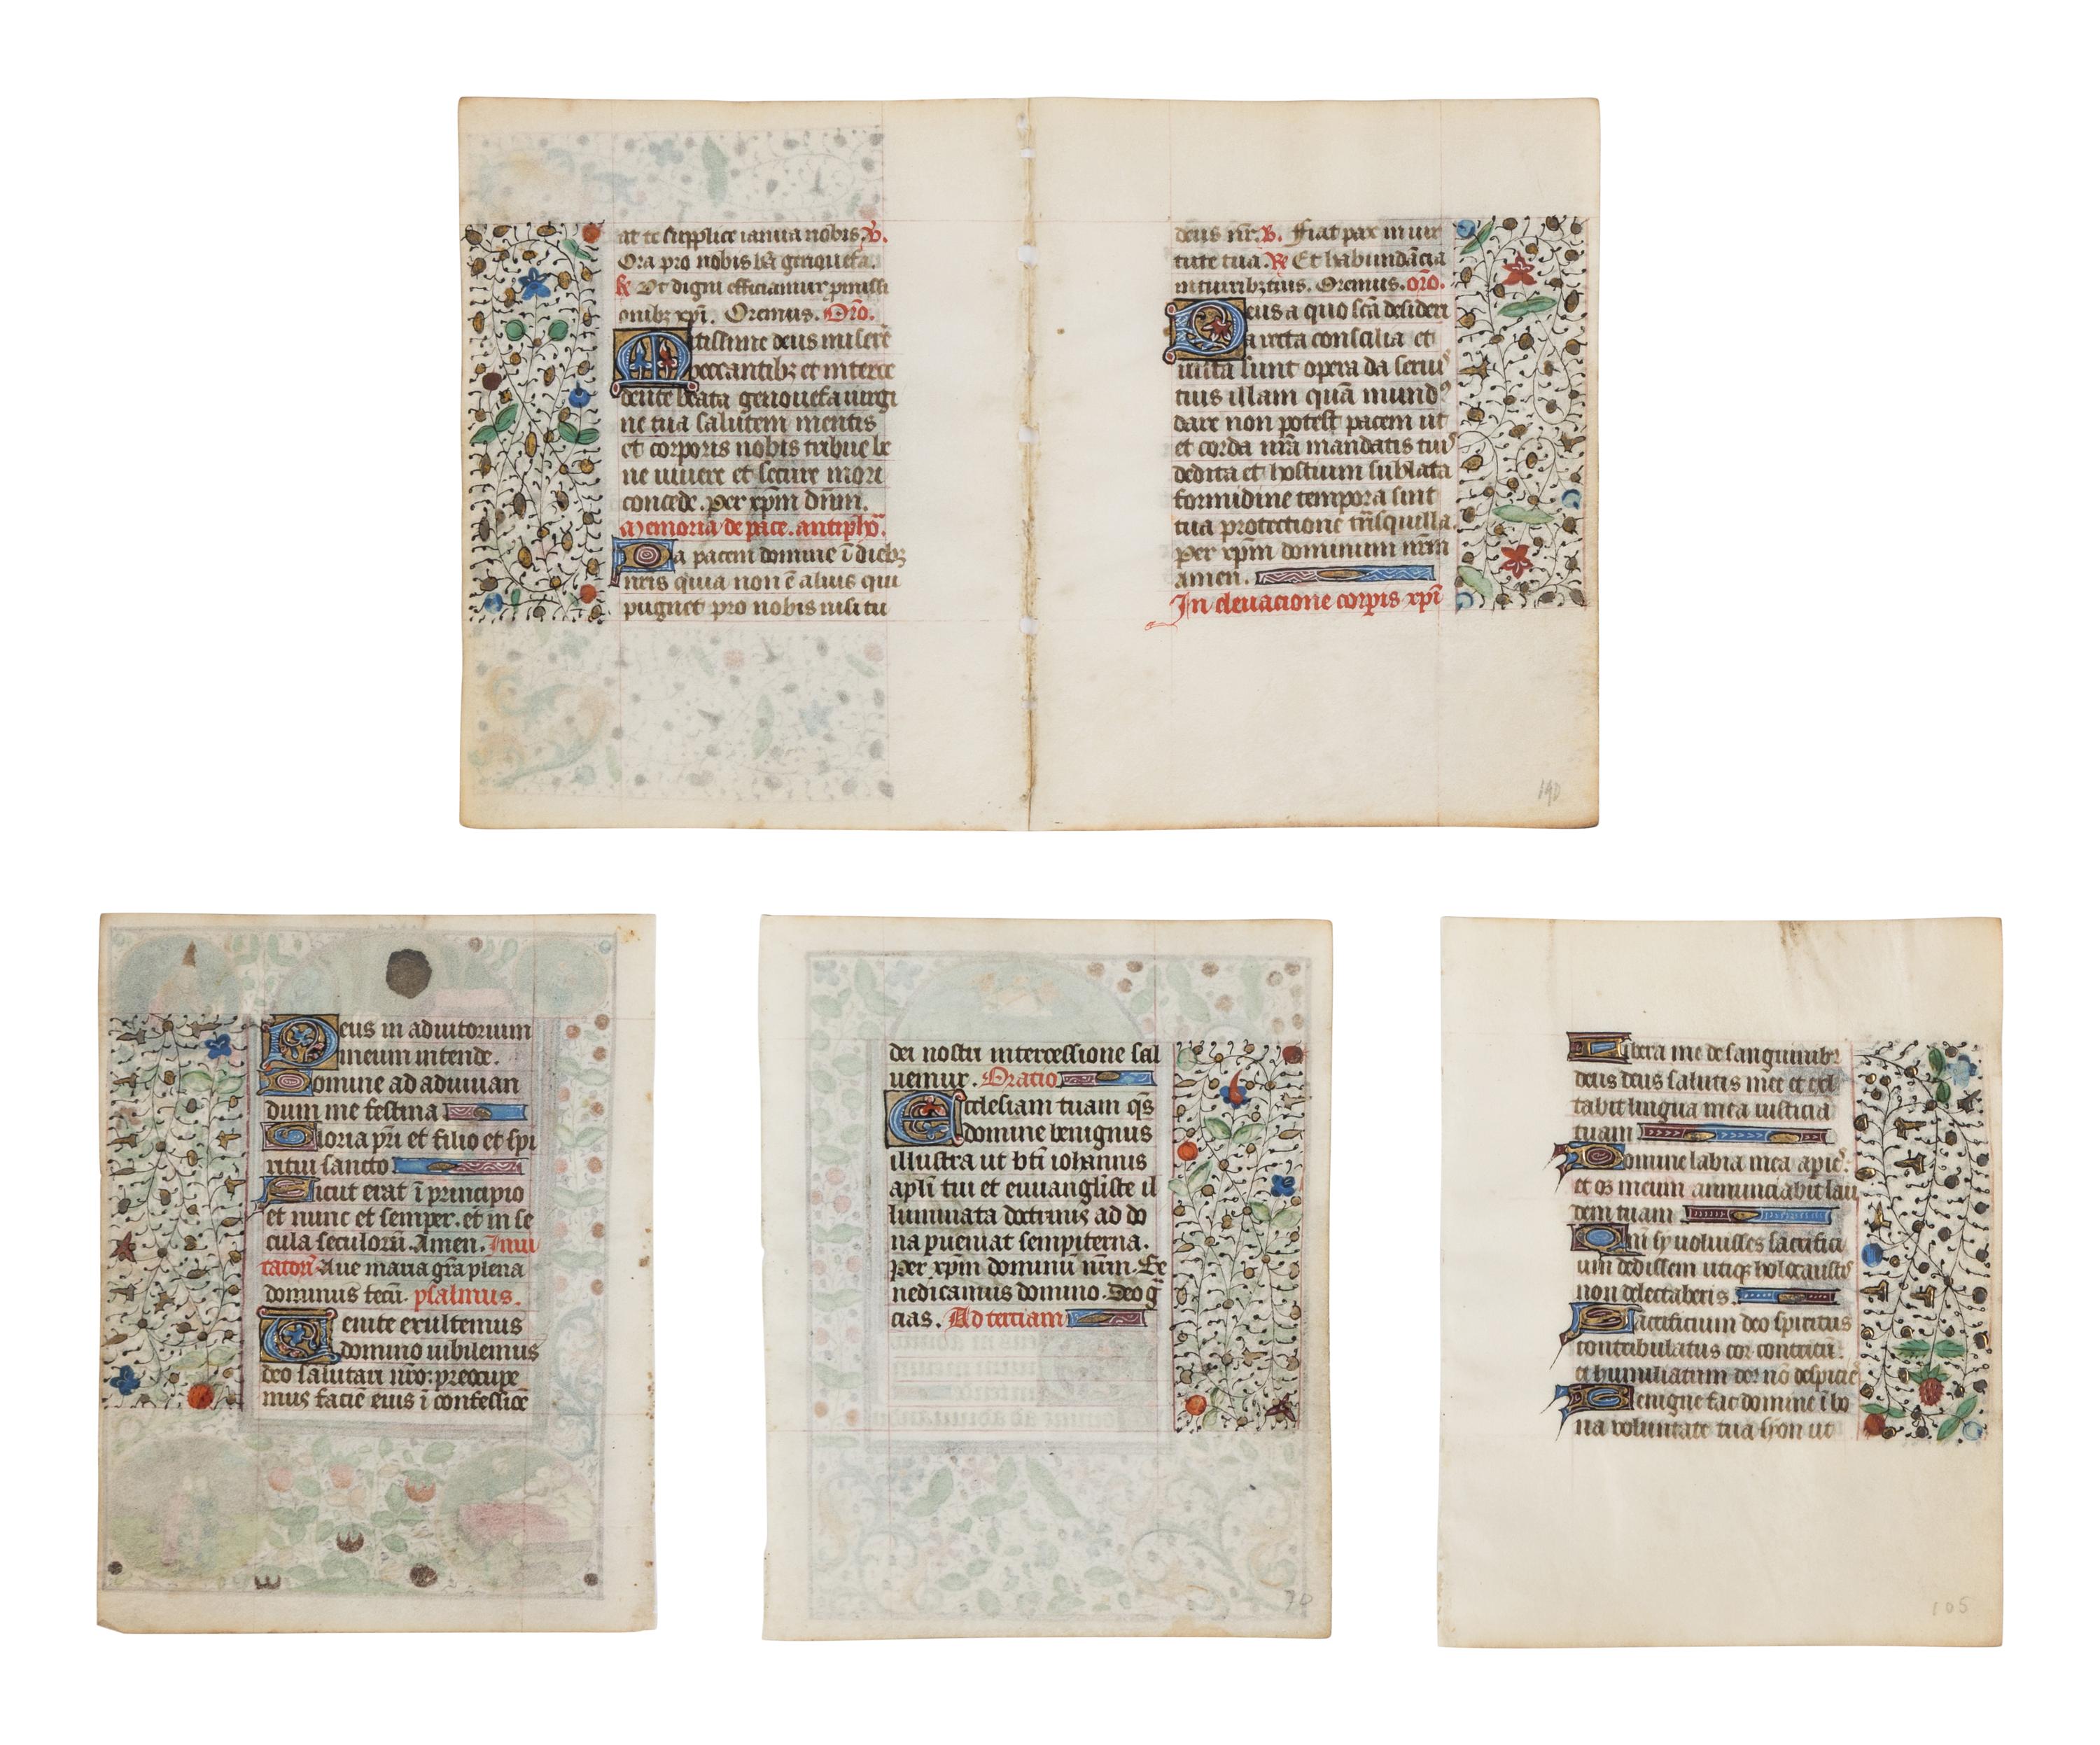 at te supplice ianua nobis. V̷.
Ora pro nobis bt̄a genouefa.
R̷ Vt digni efficiamur ꝓmissi
onibꝫ xpī. Oremus. Orō.
Mitissime deus miserē
peccantibꝫ et interce
dente beata genouefa uirgi
ne tua salutem mentis
et corporis nobis tribue be
ne uiuere et secure mori
concede. per xpm̄ dnm̄.
Memoria de pace. antiphō.
Da pacem domine ī diebꝫ
nr̄is quia non ē alius qui
pugnet pro nobis nisi tu
deus nr̄. V̷. Fiat pax in uir
tute tua. R̷ Et habundācia
in turribꝫ tuis. Oremus. orō.
Deus a quo scā desideri
a recta consilia et
iusta sunt opera da seruis
tuis illam quā mundꝰ
dare non potest pacem ut
et corda nr̄a mandatis tuis
dedita et hostium sublata
formidine tempora sint
tua protectione trāsquilla.
Per xpm̄ dominum nrm̄
amen.
In eleuacione corpis xpī
190
Deus in adiutorium
meum intende.
Domine ad adiuuan
dum me festina
Gloria pr̄i et filio et spi
ritui sancto
Sicut erat ī principio
et nunc et semper. et in se
cula seculorū. Amen. Inui
tatorī Aue maria grā plena
dominus tecū. psalmus.
Uenite exultemus
domino iubilemus
deo salutari nr̄o: preocupe
mus faciē eius ī confessiōe
dei nostri intercessione sal
uemur. Oratio
Ecclesiam tuam qs̄
domine benignus
illustra ut btī iohannis
apl̄i tui et euuangliste il
luminata doctrinis ad do
na ꝑueniat sempiterna.
Per xpm̄ dominū nrm̄. Be
nedicamus domino. Deo g̅
cias. Ad terciam
70
Libera me de sanguinibꝫ
deus deus salutis mee et exl
tabit lingua mea iusticiā
tuam
Domine labia mea apies:
et os meum annunciabit lau
dem tuam
Qm̄ sy uoluisses sacrifici
um dedissem utiqꝫ holocaustis
non delectaberis.
Sacrificium deo spiritus
contribulatus cor contritū
et humiliatum deꝰ nō despicies
Benigne fac domine ī bo
na voluntate tua syon ut
105